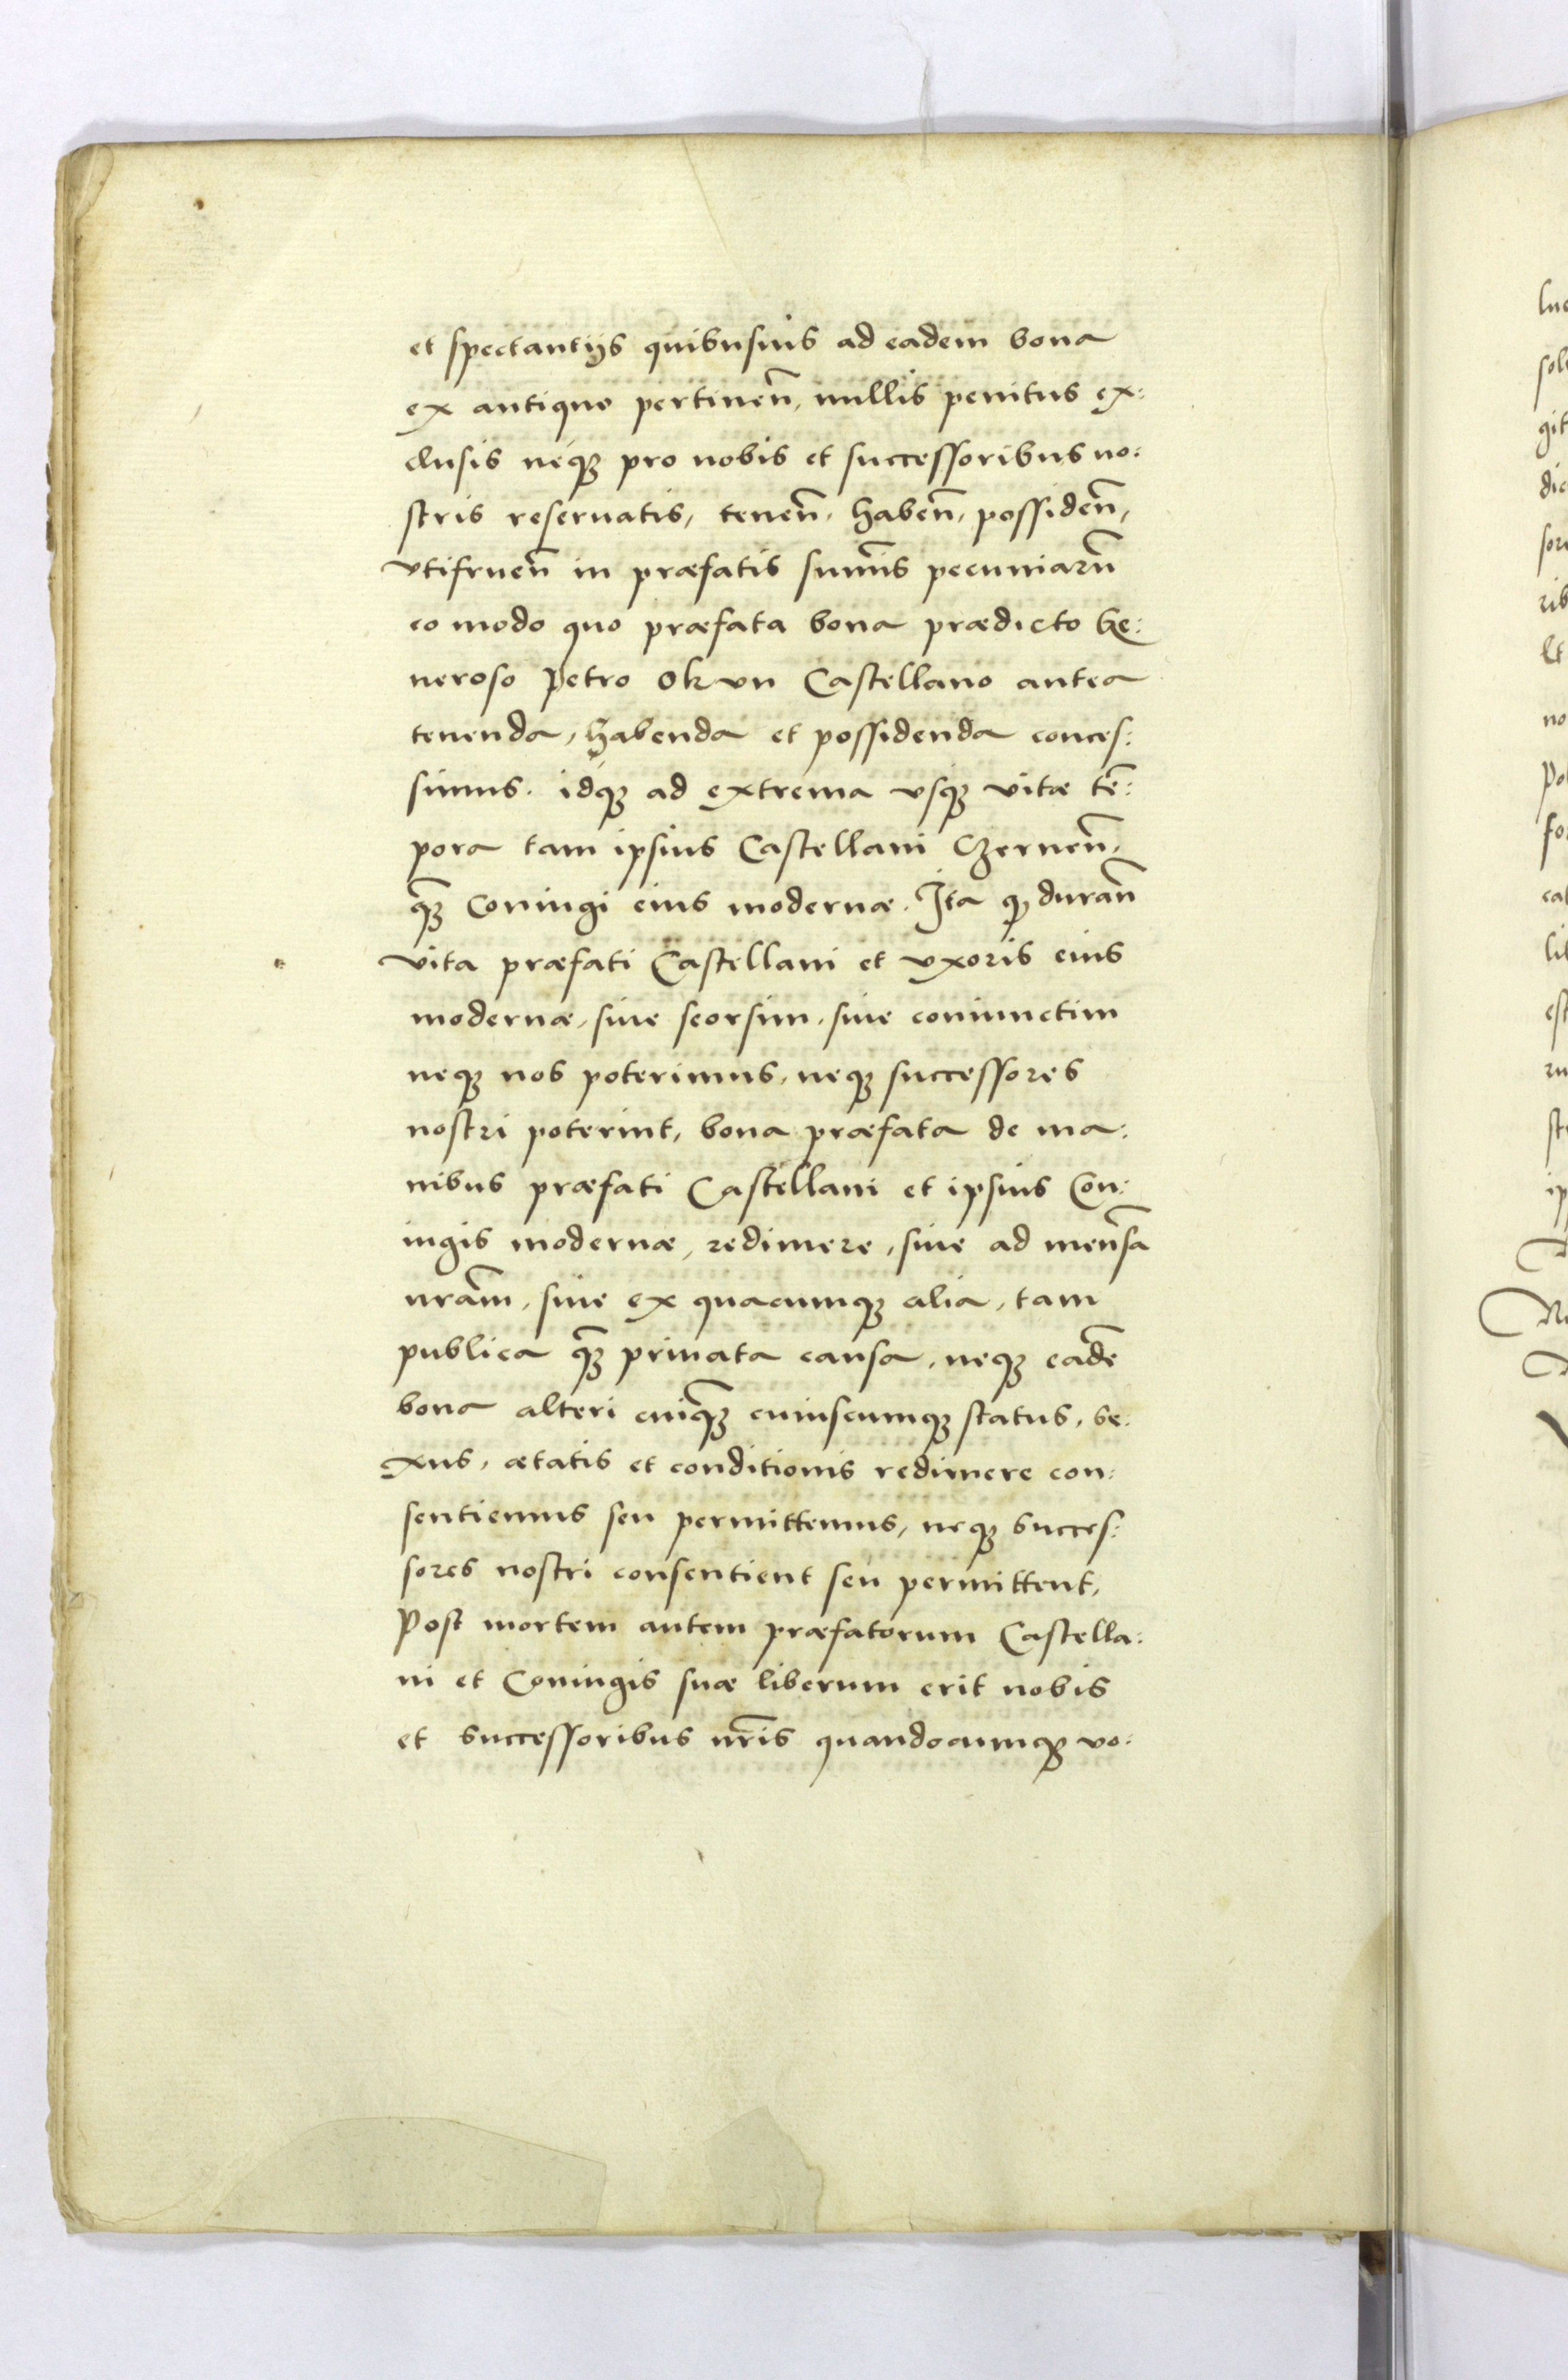 et spectantijs quibusuis ad eadem bona
ex antiquo pertineñ, nullis penitus ex:
clusis neq₃ pro nobis et successoribus no:
stris reseruatis, teneñ, habeñ, possideñ,
vtifrueñ in præfatis sum̃is pecuniarũ
eo modo quo præfata bona prædicto Ge:
neroso Petro Okvn Castellano antea
tenenda, habenda et possidenda conces:
simus. idq₃ ad extrema vsq₃ vitæ tẽ:
pora tam ipsius Castellani Czerneñ,
q̃₃ Coniugi eius modernæ. Ita ꝙ durañ
vita præfati Castellani et vxoris eius
modernæ, siue seorsim, siue coniunctim
neq₃ nos poterimus, neq₃ successores
nostri poterint, bona præfata de ma:
nibus præfati Castellani et ipsius Con:
iugis modernæ, redimere, siue ad mensã
nrãm, siue ex quacumq₃ alia, tam
publica q̃₃ priuata causa, neq₃ eadẽ
bona alteri cuiq̃₃ cuiuscumq₃ status, se:
xus, ætatis et conditionis redimere con:
sentiemus seu permittemus, neq₃ succes:
sores nostri consentient seu permittent,
Post mortem autem præfatorum Castella:
ni et Coniugis suæ liberum erit nobis
et successoribus nr̃is quandocumq₃ vo: